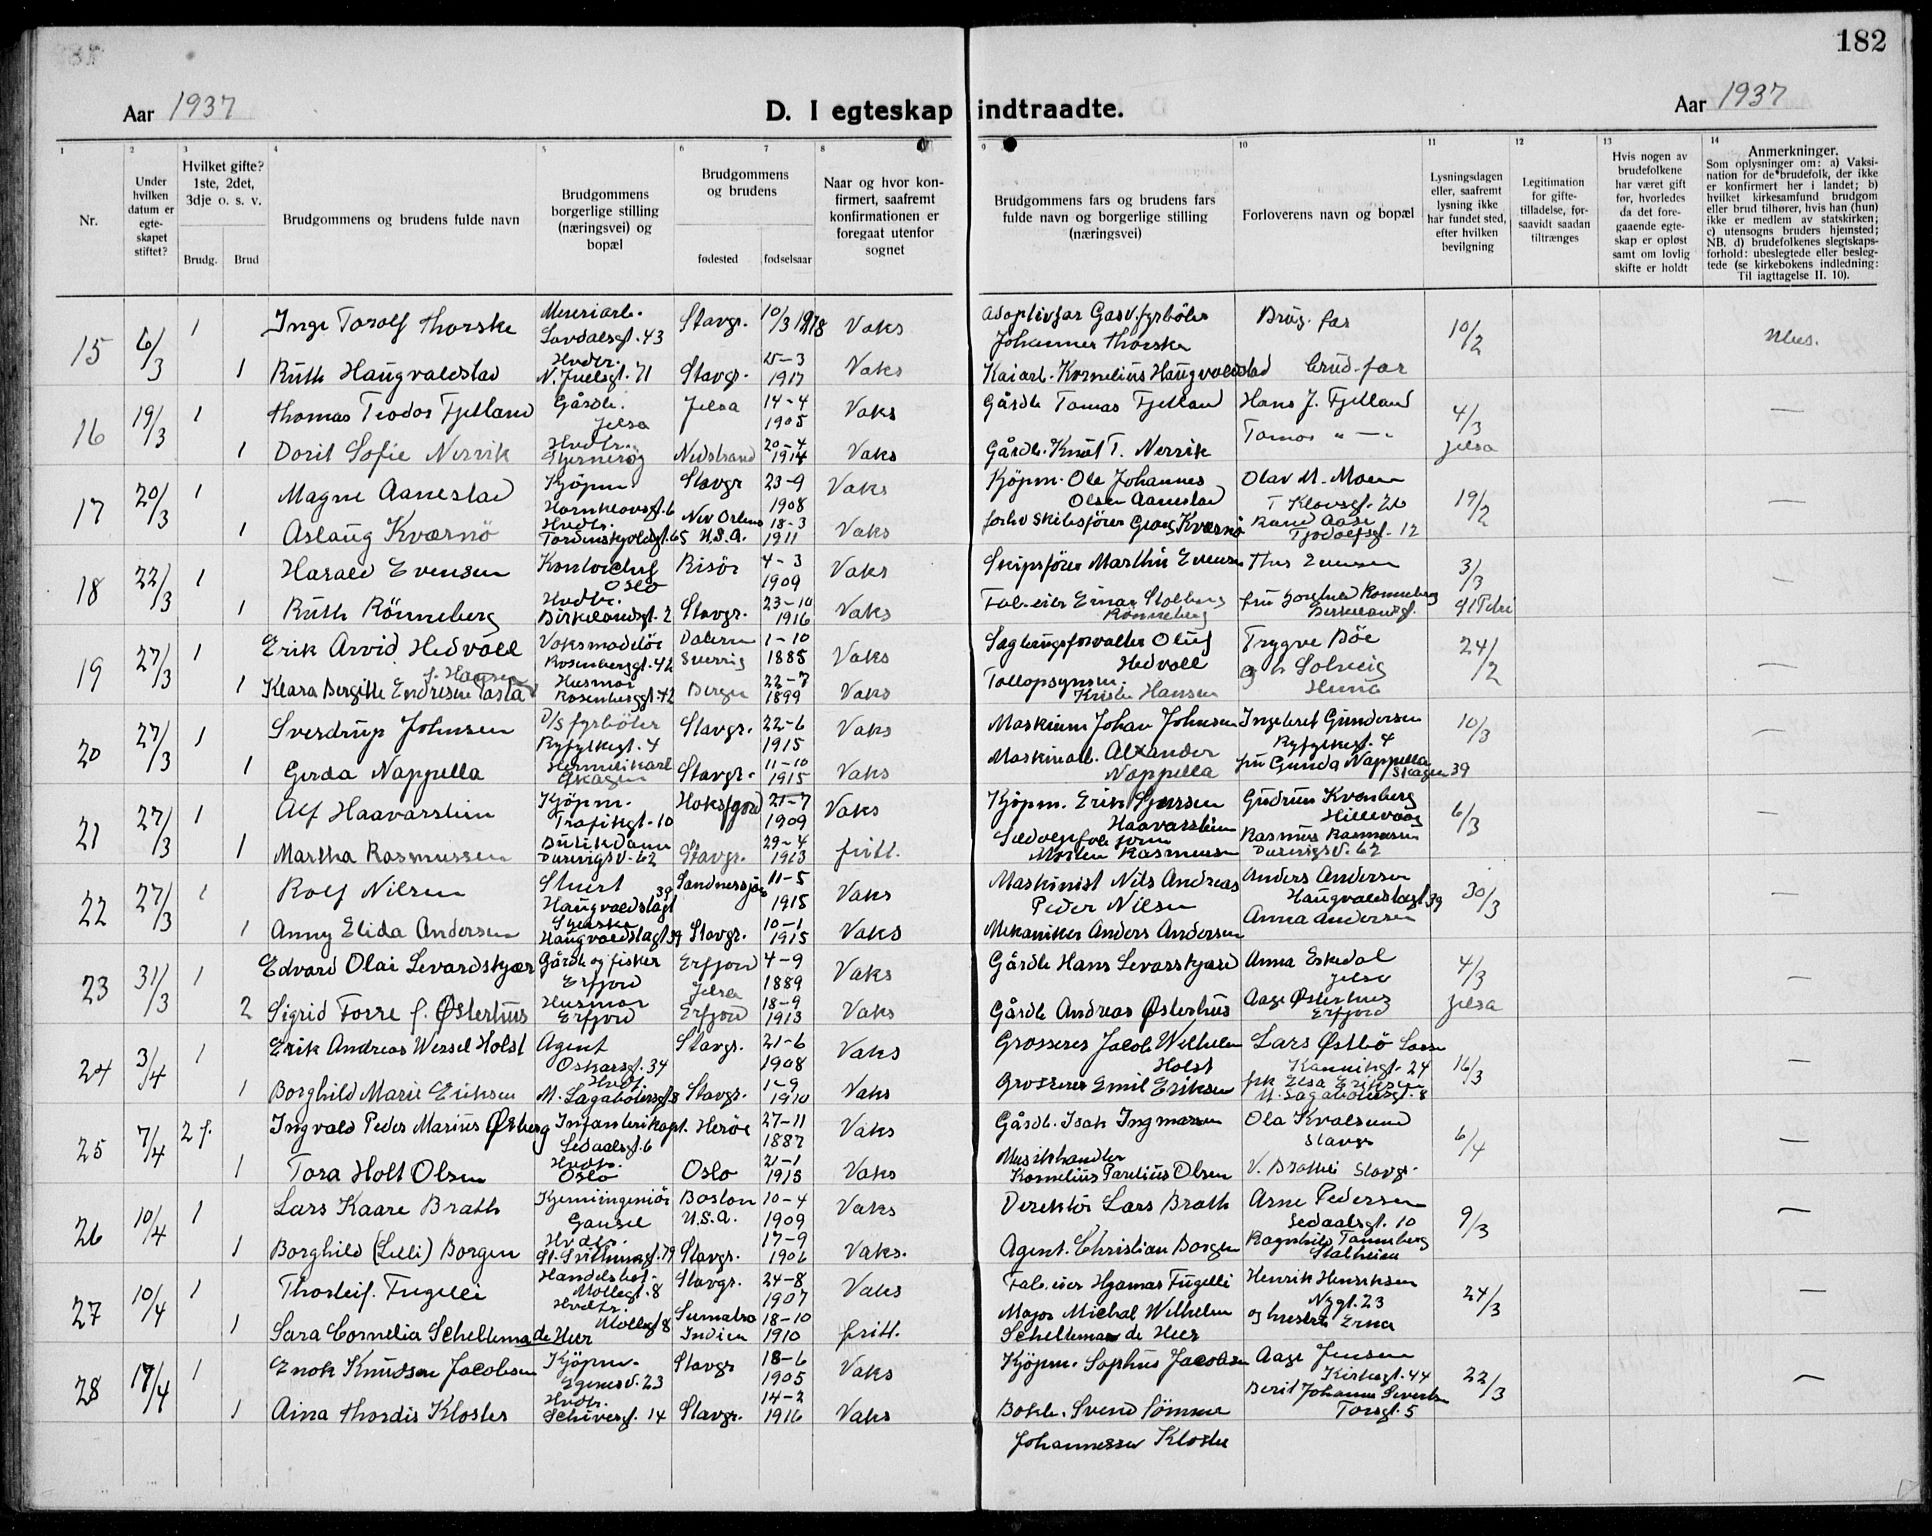 182
Aar 1937
D. I egteskap indtraadte.
Aar 1937
1
2
3
4
5
6
7
8
9
10
11
12
13
14
Nr.
Under
hvilken
datum er
egte-
skapet
stiftet?
Hvilket gifte?
1ste, 2det,
3dje o. s. v.
Brudg.
Brud
Brudgommens og brudens fulde navn
Brudgommens
borgerlige stilling
(næringsvei) og
bopæl
Brudgommens
og brudens
fødested
fødselsaar
Naar og hvor kon-
firmert, saafremt
konfirmationen er
foregaat utenfor
sognet
Brudgommens fars og brudens fars
fulde navn og borgerlige stilling
(næringsvei)
Forloverens navn og bopæl
Lysningsdagen
eller, saafremt
lysning ikke
har fundet sted,
efter hvilken
bevilgning
Legitimation
for gifte-
tilladelse, før-
saavidt saadan
tiltrænges
Hvis nogen av
brudefolkene
har været gift
før, hvorledes
da det fore-
gaaende egte-
skap er opløst
samt om lovlig
skifte er holdt
Anmerkninger.
Som oplysninger om: a) Vaksi-
nation for de brudefolk, der ikke
er konfirmert her i landet; b)
hvilket kirkesamfund brudgom
eller brud tilhører, hvis han (hun)
ikke er medlem av statskirken;
c) utensogns bruders hjemsted;
NB. d) brudefolkenes slegtskaps-
forhold: ubeslegtede eller besleg-
tede (se kirkebokens indledning:
Til iagttagelse II. 10).
15 6/3 1 Inge Torolf Thorske Meieriarb. Lovdalsgt. 43 Stavgr. 10/3 1918 Vaks Adoptivfar Gasv.fyrböter Johannes Thorske Brüg. far 10/2 Ubes.
1 Ruth Haugvaldstad Hvdtr. N. Juelsgt. 71 Stavgr. 25-3 1917 Vaks Kaiarb. Kornelius Haugvaldstad brud. far
16 19/3 1 Thomas Teodor Fjelland Gårdb. Jelsa Jelsa 14-4 1905 Vaks Gårdb Tomas Fjelland Hans J. Fjelland 4/3 Jelsa —
1 Dorit Sofie Nervik Hvdtr. Nedstrand 20-4 1914 Vaks Gårdb. Knut T. Nervik Tomas " —
17 20/3 1 Magne Aanestad Kjöpm. Hornklovsgt. 6 Stavgr 23-9 1908 Vaks Kjöpm. Ole Johannes Olsen Aanestad Olav M. Moen T Klovsgt. 26 19/2 —
1 Aslaug Kværnö Hvdtr. Tordenskjoldsgt. 65 New Orleans U.S.A. 18-3 1911 Vaks forhv skibsförer Georg Kværnö Rand Aase Tjodolfsgt. 12
18 22/3 1 Harald Evensen Kontorchef Oslo Risör 4-3 1909 Vaks Skipsförer Marthin Evensen Thus Evensen 3/3 St Petri —
1 Ruth Rönneberg Hvdtr. Birkelandsgt. 2 Stavgr. 23-10 1916 Vaks Fab.eier Einar Stolberg Rönneberg fru Borghild Rönneberg Birkelandsgt.
19 27/3 1 Erik Arvid Hedvall Voksmodelör Rosenberggt. 42 Dalerna Sverrig 1-10 1885 Vaks Sagbrugsforvalter Oluf Hedvall Trygve Böe 24/2 —
1 Klara Bergitte Endresen Tasta f. Hansen Husmor Rosenberggt. 42 Bergen 22-7 1899 Vaks Tollopsynsm. Krister Hansen og h Solveig
20 27/3 1 Sverdrup Johnsen D/S fyrböter Ryfylkegt. 4 Stavgr. 22-6 1915 Vaks Maskinm Johan Johnsen Ingebret Gundersen Ryfylkegt. 4 10/3 —
1 Gerda Nappella Hermetikarb Skagen Stavgr. 11-10 1915 Vaks Maskinarb. Alexander Nappella fru Gunda Nappella Skagen 39
21 27/3 1 Alf Haavarstein Kjöpm. Trafikgt. 10 Hoksfjord 21-7 1909 Vaks Kjöpm. Erik Sjursen Haavarstein Gudrun Kvonberg Hillevaag 6/3 —
1 Martha Rasmussen Butikdame Dusevigsv. 62 Stavgr. 29-4 1913 fritt. Morten Rasmussen Rasmus Rasmussen Dusevigsv. 62
22 27/3 1 Rolf Nilsen Stuert Haugvaldstadgt 39 Sandnessjöen 11-5 1915 Vaks Maskinist Nils Andreas Peder Nilsen Anders Andersen Haugvaldstadgt. 39 30/3 —
1 Anny Elida Andersen Syerske Haugvaldstadgt 39 Stavgr. 10-1 1915 Vaks Mekaniker Anders Andersen Anna Andersen
23 31/3 1 Edvard Olai Levardskjær Gårdb og fisker Erfjord Erfjord Jelsa 4-9 1889 Vaks Gårdb Hans Levarskjær Anna Eskedal Jelsa 4/3 Jelsa —
2 Sigrid Forre f. Østerhus Husmor Erfjord Erfjord 18-9 1913 Vaks Gårdb Andreas Østerhus Aage Østerhus Erfjord
24 3/4 1 Erik Andreas Wessel Holst Agent Oskarsgt. 34 Stavgr. 21-6 1908 Vaks Grosserer Jacob Wilhelm Holst Lars Østbö Kannikgt. 24 16/3 —
1 Borghild Marie Eriksen Hvdt. M. Lagabötersgt 8 Stavgr. 1-9 1910 Vaks Grosserer Emil Eriksen frk Elsa Eriksen M. Lagabötersgt. 8
25 7/4 2 f. Ingvald Peder Marius Østberg Infanterikapt. Ledaalsgt. 6 Heröe 27-11 1887 Vaks Gårdb. Isak Ingmarsen Ola Kvalsund Stavgr 6/4 —
1 Tora Holt Olsen Hvdtr. Oslo Oslo 21-1 1915 Vaks Musikhandler Kornelius Parelius Olsen V. Bratlei Stavgr.
26 10/4 1 Lars Kaare Brath Kjemiingeniör Gausel Boston U.S.A. 10-4 1909 Vaks Derektör Lars Brath Arne Pedersen Ledaalsgt. 10 9/3 —
1 Borghild (Lilli) Borgen Hvdtr. St. Svithunsgt. 79 Stavgr. 17-9 1906 Vaks. Agent. Christian Borgen Ragnhild Tanneberg Stalheim
27 10/4 1 Thorleif. Fugelli Handelsbet. Möllegt. 8 Stavgr. 24-8 1907 Vaks Fab.eier Hjalmar Fugelli Henrik Henriksen Nygt. 23 24/3 —
1 Sara Cornelia Scheltema de Heer Hvdtr. Möllegt 8 Sumatra Indien 18-10 1910 fritt. Major Michal Wilhelm Scheltema de Heer og hustru Erna
28 17/4 1 Enok Knudsen Jacobsen Kjöpm. Egenesv. 23 Stavgr 18-6 1905 Vaks Kjöpm. Sophus Jacobsen Aage Jensen Kirkegt. 44 22/3 —
1 Aina Thordis Kloster Hvdtr. Schivesgt. 14 Stavgr. 14-2 1916 Vaks Bokh. Svend Sömme Johannessen Kloster Berit Johanne Sivertsen Torsgt. 5